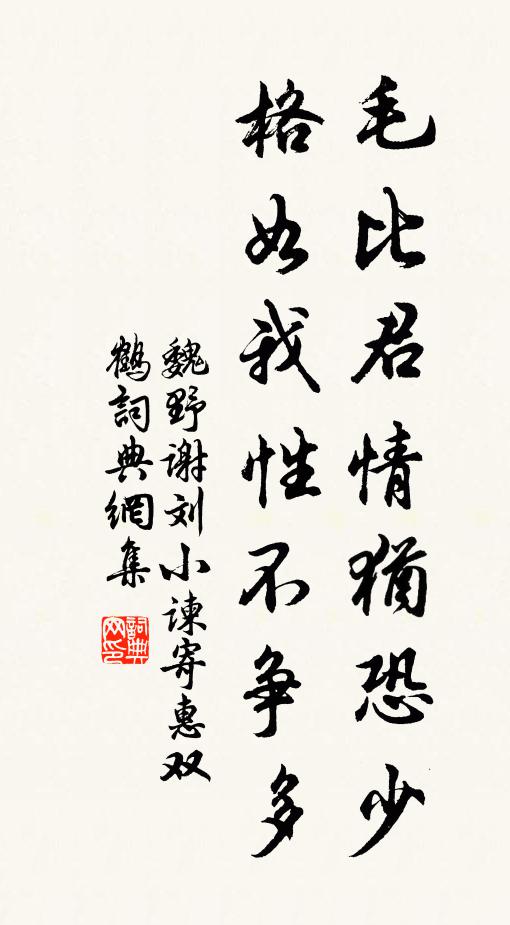 毛比君情猶恐少
格如我性不争多
魏野谢刘小諫寄惠双
鶴詞典網集
詞典
网印